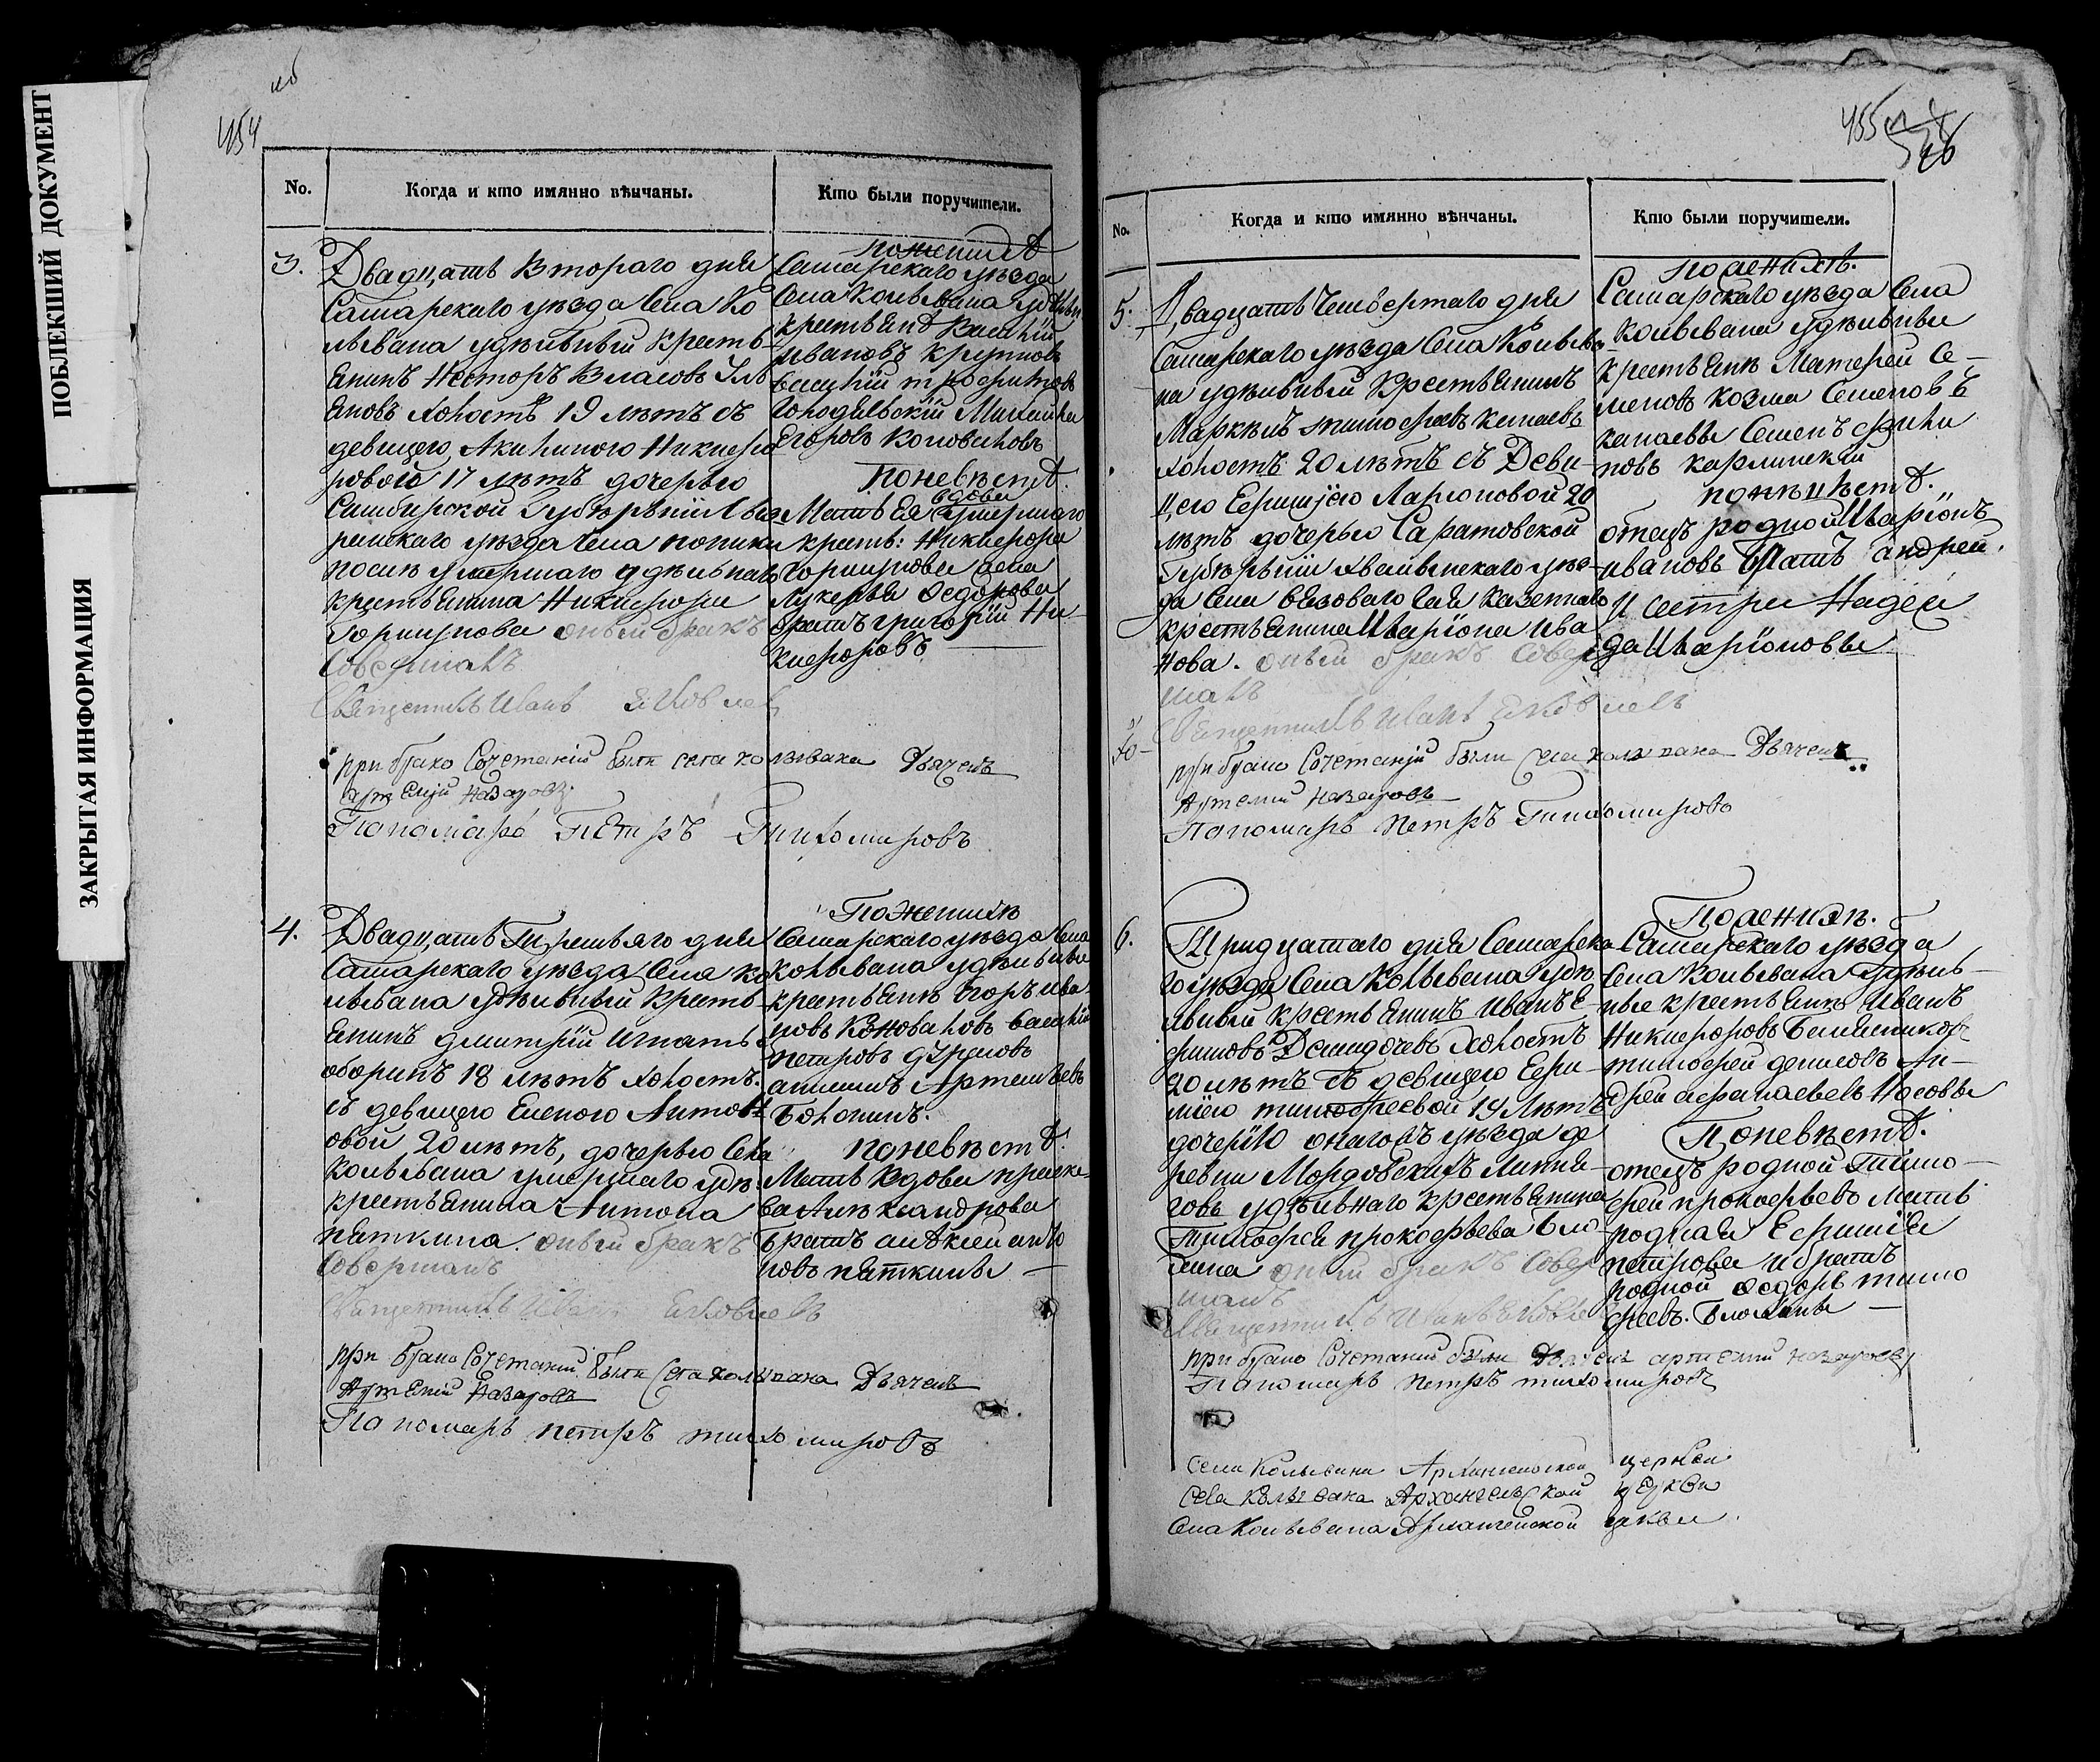 ПОБЛЕКШИЙ ДОКУМЕНТ
ЗАКРЫТАЯ ИНФОРМАЦИЯ
454
No.
Когда и кто имянно вѣнчаны.
Кто были поручители.
3.
Двадцать втораго дня
Самарскаго уѣзда Села Ко
лывана удѣльный кресть
янинъ Несторъ Власовъ
холостъ 19 лѣтъ съ
девицею Акилиною Никифо
ровою 17 лѣтъ дочерью
Симбирской Губѣрніи
уѣзда Села
умершаго удѣльнаго
крестьянина Никифора
Горшунова оный бракъ
Совершалъ
Священникъ Иванъ Яковлев
при брако Сочетаніи были села колывана Дьячекъ
Артемій Назаровъ
Пономарь Петръ Тихомировъ
по женихѣ
Самарскаго уѣзда
Села Колывана
крестьяне Василій
Ивановъ Крупновъ
Василій Трофимовъ
Городѣльскій Михайла
Егоровъ Коноваловъ
по невѣстѣ
Мать Ея вдова умершаго
кресть: Никифора
Горшунова жена
Лукерья Федорова
братъ григорій Ни-
кифоровъ
4.
Двадцать Третьяго дня
Самарскаго уѣзда Села ко
лывана удѣльный кресть
янинъ дмитрій Игнатьевъ
оборинъ 18 лѣтъ холостъ.
съ девицею Еленою Антон
овой 20 лѣтъ, дочерью Села
Колывана умершаго удѣ:
крестьянина Антона
пяткина. оный бракъ
Совершалъ
Священникъ Иванъ Яковлевъ
при брако Сочетаніи были Села колывана Дьячекъ
Артемій Назаровъ
Пономарь петръ тихомировъ
По женихѣ
Самарскаго уѣзда Села
Колывана удѣльные
крестьяне Егоръ ива
новъ Коноваловъ Василій
петровъ
Артемьевъ
Болонинъ.
по невѣстѣ
Мать вдова праско
ва Александрова
братъ алѣксей анто
новъ пяткины
455
No.
Когда и кто имянно вѣнчаны.
Кто были поручители.
5.
Двадцать Четвертаго дня
Самарскаго уѣзда Села Колыва
на удѣльный крестьянинъ
Маркелъ тимофеевъ капаевъ
холостъ 20 лѣтъ съ Деви-
цею Ефиміею Ларіоновой 20
лѣтъ дочерью Саратовской
Губѣрніи хвалынскаго уѣз-
да Села вязоваго гая казеннаго
крестьянина Иларіона Ива
нова. оный бракъ Совер
шалъ
Священникъ Иванъ Яковлевъ
при брако Сочетаніи были Села колывана Дьячекъ
Артемій назаровъ
Пономарь петръ Тихомировъ
По женихѣ.
Самарскаго уѣзда Села
Колывана удѣльные
крестьяне Матфей Се-
меновъ козма Семеновъ
капаевы Семенъ фили
повъ карлинскій
по невѣстѣ.
отецъ родной Иларіонъ
ивановъ братъ андрей
и сестра Надеж
да Иларіоновы
6.
Тридцатаго дня Самарска
го уѣзда Села Колывана удѣ
льный крестьянинъ Иванъ Е-
фимовъ Демидочевъ холостъ
20 лѣтъ съ девицею Ефи-
міею тимофеевой 19 лѣтъ
дочерію онагожъ уѣзда де
ревни Мордовскихъ Липя-
говъ удѣльнаго крестьянина
Тимофея прокофьева Бло
хина оный бракъ Совер
шалъ
Священникъ Иванъ Яковлев
при брако Сочетаніи были Дьячекъ артемій назаровъ
Пономарь петръ тихомировъ
По женихѣ.
Самарскаго уѣзда
Села Колывана удѣль-
ные крестьяне Иванъ
Никифоровъ
тимофей даниловъ Ан-
дрей афанасьевъ Носовы
По невѣстѣ.
отецъ родной Тимо-
фей прокофьевъ мать
родная Ефимія
петрова и братъ
родной федоръ тимо
феевъ. блохины
Села Колывана Архангельской церкви
Села Колывана Архангельской церкви
Села Колывана Архангельской цркви